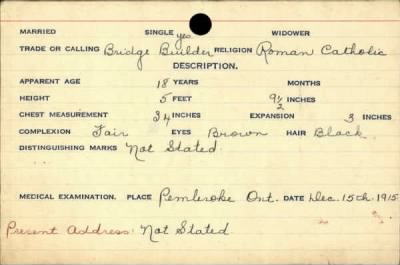 MARRIED SINGLE yes WIDOWER
TRADE OR CALLING Bridge Builder RELIGION Roman Catholic
DESCRIPTION.
APPARENT AGE 18 YEARS MONTHS
HEIGHT 5 FEET 9½ INCHES
CHEST MEASUREMENT 34 INCHES EXPANSION 3 INCHES
COMPLEXION Fair EYES Brown HAIR Black.
DISTINGUISHING MARKS Not Stated.
MEDICAL EXAMINATION. PLACE Pembroke Ont. DATE Dec. 15th. 1915
Present Address: Not Stated.